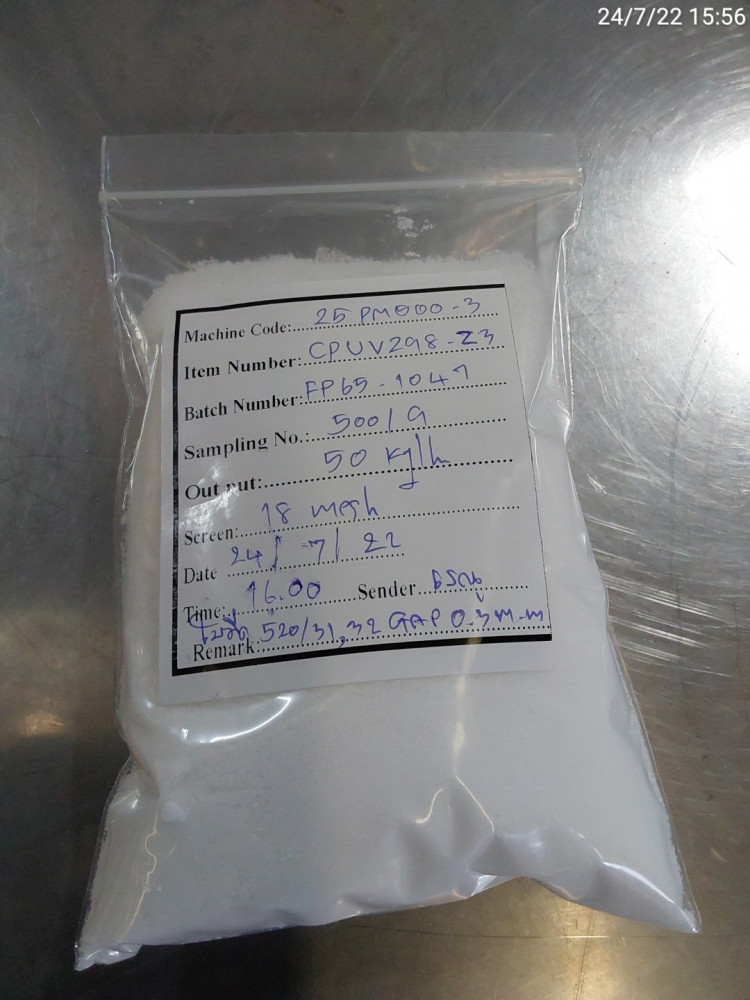 24/7/22 15:56
Machine Code: 25 PM000-3
Item Number: CPUV298-Z3
Batch Number: FP65-1047
Sampling No.: 500/9
Out put: 50 kg/h
Screen: 18 mesh
Date 24/7/22
Time: 16.00 Sender
ใบมีด 520/31,32 GAP 0.3 m.m
Remark: